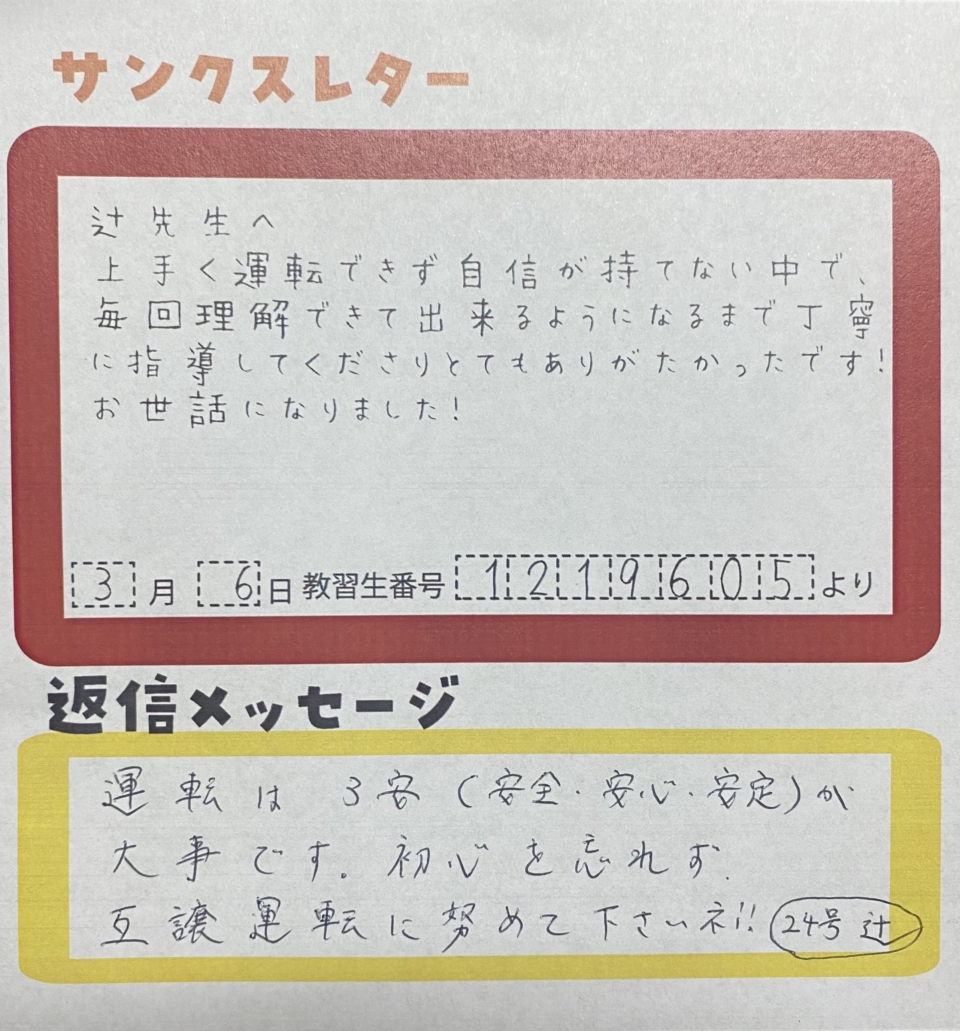 サンクスレター
辻先生へ
上手く運転できず自信が持てない中で、
毎回理解できて出来るようになるまで丁寧
に指導してくださりとてもありがたかったです!
お世話になりました!
3月 6日 教習生番号 1219605より
返信メッセージ
運転は 3客 (安全・安心・安定)が
大事です。初心を忘れず、
互譲運転に努めて下さいネ!! 24号 辻